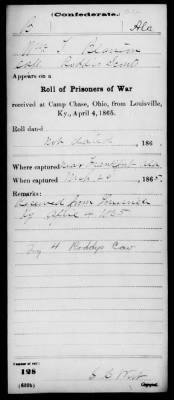 (Confederate.)
Ala
Wm T
Capt Roddy's Scouts
Appears on a
Roll of Prisoners of War
received at Camp Chase, Ohio, from Louisville,
Ky., April 4, 1865.
Roll dated
Not dated 186 .
Where captured near Frankfort Ala
When captured Mch 1865.
Remarks:
Received from
by April 4 1865
4 Roddys Cav
Number of roll:
128
(639b)
Copyist.